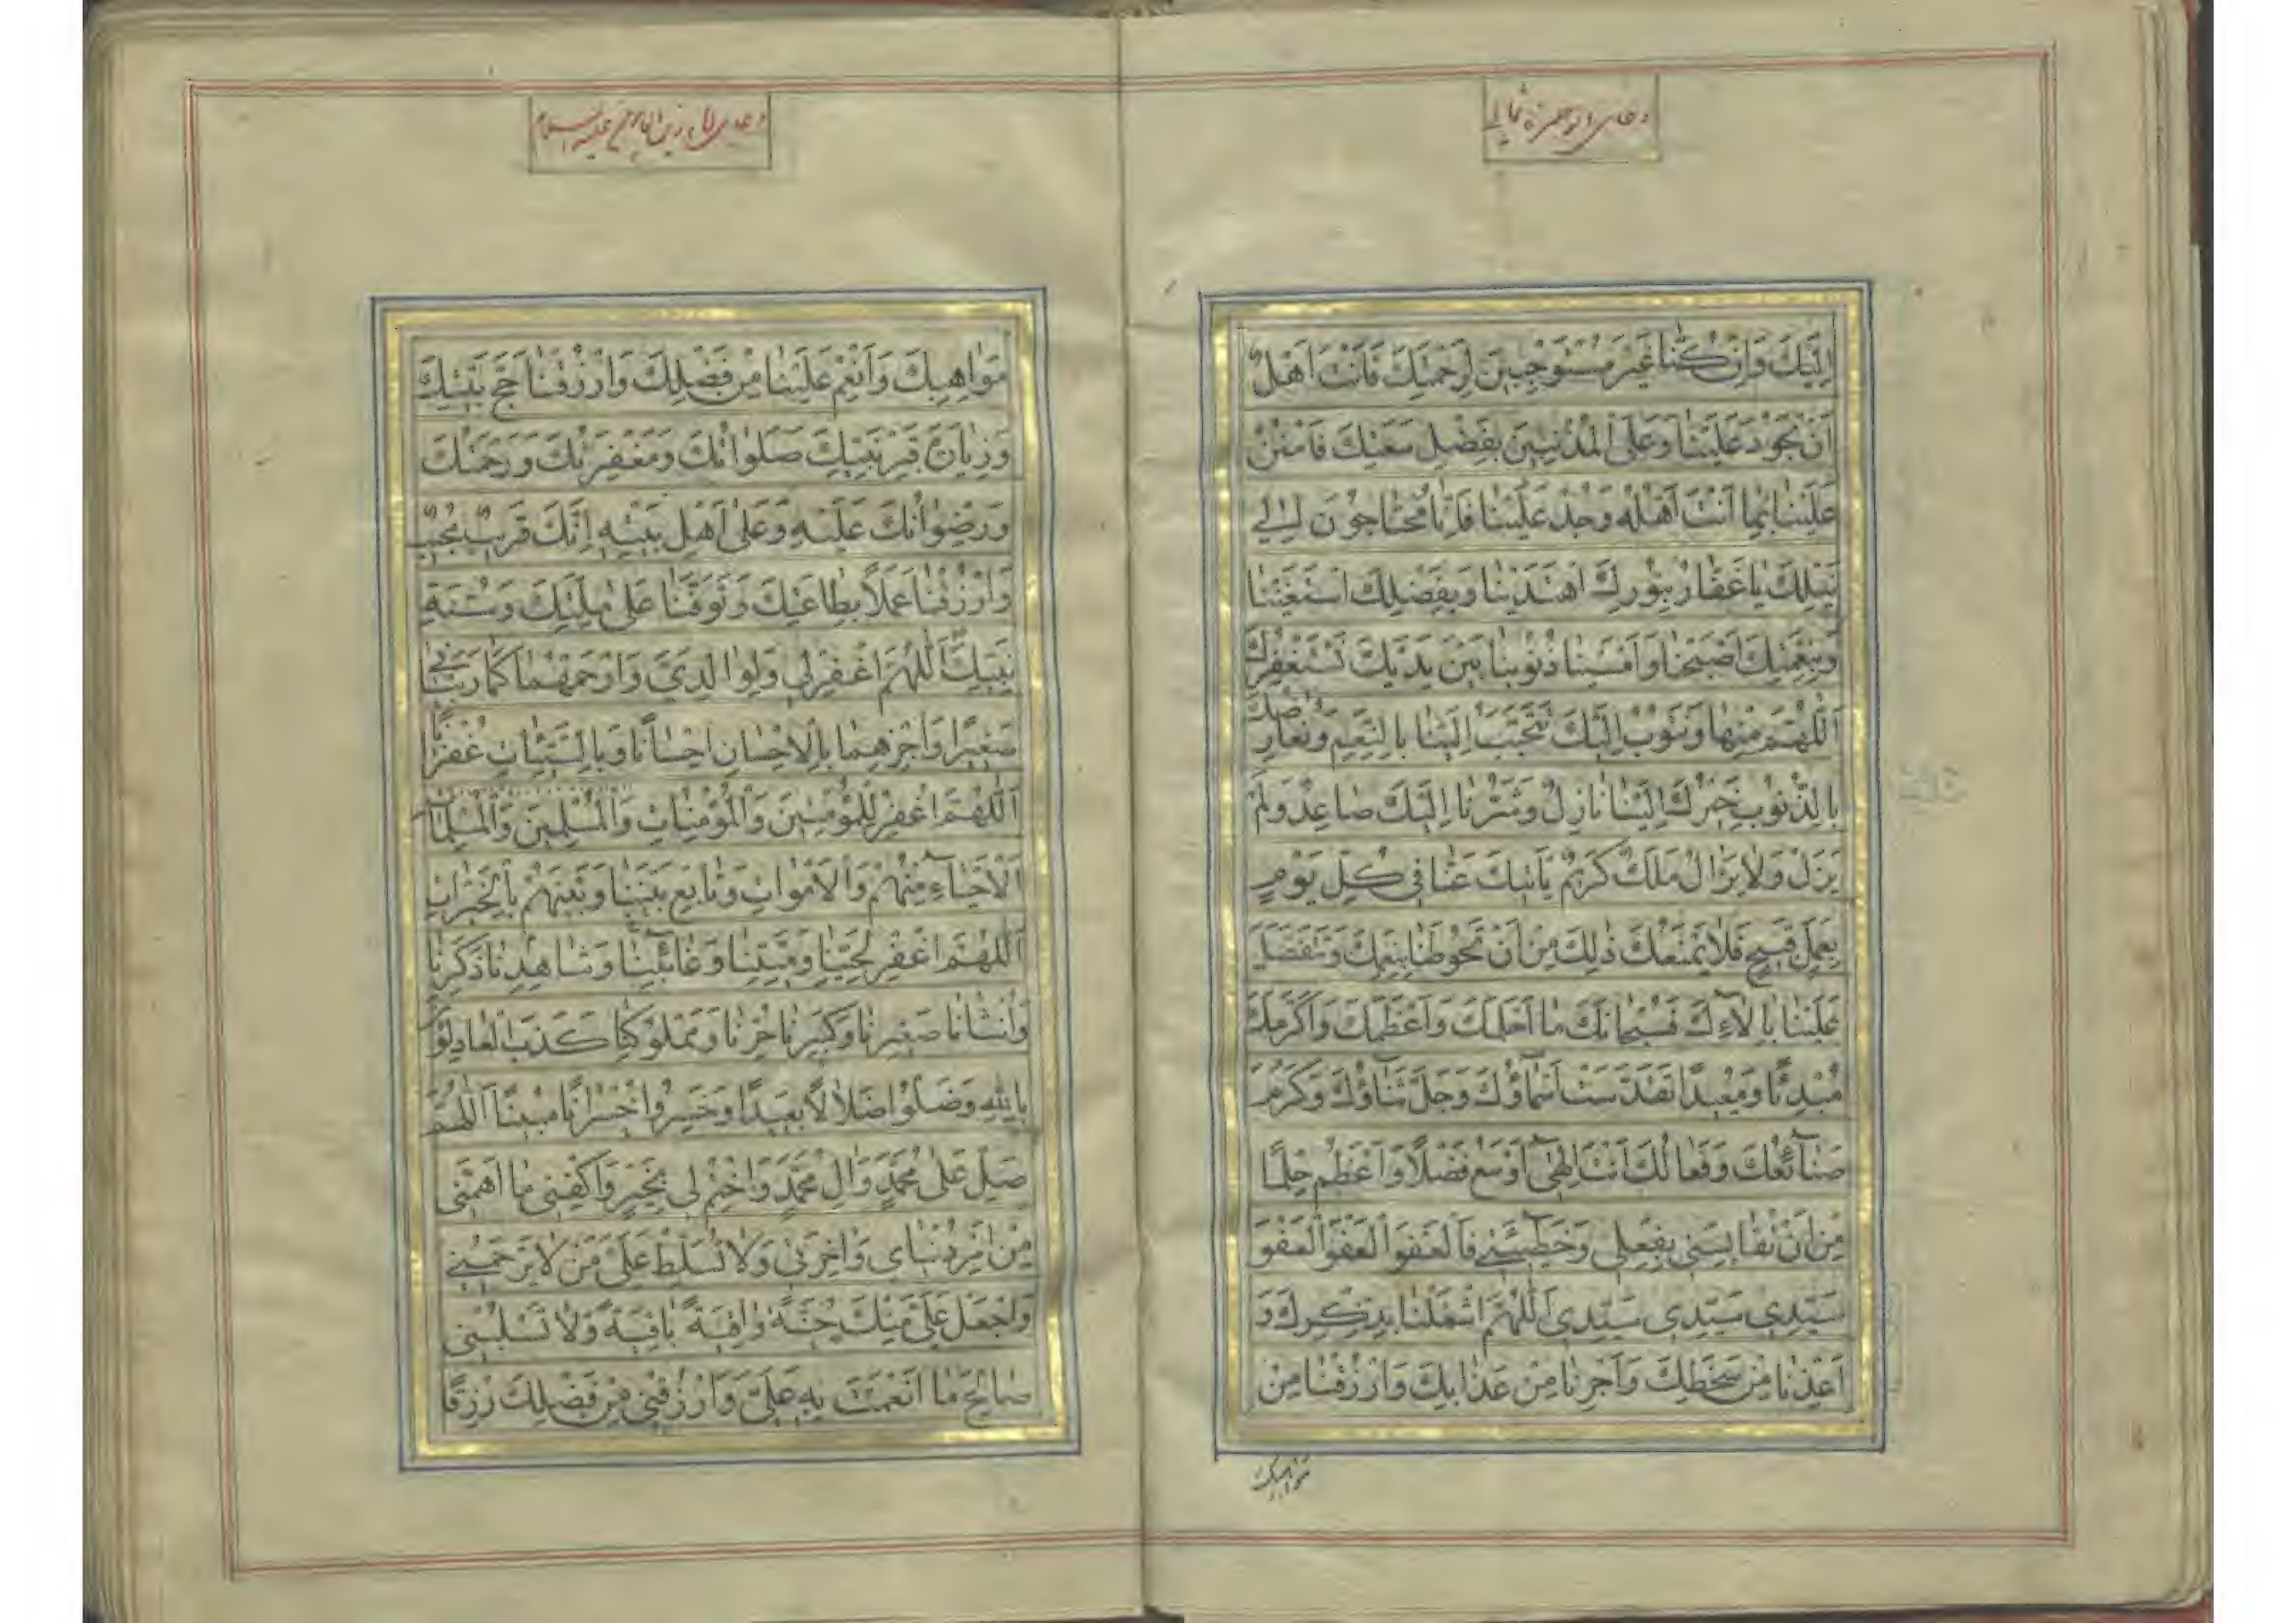 دعای ابو حمزه ثمالی
اِلَيْكَ وَاِنْ كُنّا غَيْرَ مُسْتَوْجِبينَ لِرَحْمَتِكَ فَاَنْتَ اَهْلٌ
اَنْ تَجُودَ عَلَيْنا وَعَلَى الْمُذْنِبينَ بِفَضْلِ سَعَتِكَ فَامْنُنْ
عَلَيْنا بِما اَنْتَ اَهْلُهُ وَجُدْ عَلَيْنا فَاِنّا مُحْتاجُونَ اِلى
نَيْلِكَ يا غَفّارُ بِنُورِكَ اهْتَدَيْنا وَبِفَضْلِكَ اسْتَغْنَيْنا
وَبِنِعْمَتِكَ اَصْبَحْنا وَاَمْسَيْنا ذُنُوبُنا بَيْنَ يَدَيْكَ نَسْتَغْفِرُكَ
اَللّهُمَّ مِنْها وَنَتُوبُ اِلَيْكَ تَتَحَبَّبُ اِلَيْنا بِالنِّعَمِ وَنُعارِضُكَ
بِالذُّنُوبِ خَيْرُكَ اِلَيْنا نازِلٌ وَشَرُّنا اِلَيْكَ صاعِدٌ وَلَمْ
يَزَلْ وَلا يَزالُ مَلَكٌ كَريمٌ يَأْتيكَ عَنّا في كُلِّ يَوْمٍ
بِعَمَلٍ قَبيحٍ فَلا يَمْنَعُكَ ذلِكَ مِنْ اَنْ تَحُوطَنا بِنِعَمِكَ وَتَتَفَضَّلَ
عَلَيْنا بِالآءِكَ فَسُبْحانَكَ ما اَحْلَمَكَ وَاَعْظَمَكَ وَاَكْرَمَكَ
مُبْدِئًا وَمُعيدًا تَقَدَّسَتْ اَسْماؤُكَ وَجَلَّ ثَناؤُكَ وَكَرُمَ
صَنآئِعُكَ وَفَعالُكَ اَنْتَ اِلهى اَوْسَعُ فَضْلاً وَاَعْظَمُ حِلْمًا
مِنْ اَنْ تُقايِسَنى بِفِعْلى وَخَطيئَتى فَالْعَفْوَ الْعَفْوَ الْعَفْوَ
سَيِّدى سَيِّدى سَيِّدى اَللّهُمَّ اشْغَلْنا بِذِكْرِكَ وَ
اَعِذْنا مِنْ سَخَطِكَ وَاَجِرْنا مِنْ عَذابِكَ وَارْزُقْنا مِنْ
مواهبك
دعای امام زین العابدین علیه السلام
مَواهِبِكَ وَاَنْعِمْ عَلَيْنا مِنْ فَضْلِكَ وَارْزُقْنا حَجَّ بَيْتِكَ
وَزِيارَةَ قَبْرِ نَبِيِّكَ صَلَواتُكَ وَمَغْفِرَتُكَ وَرَحْمَتُكَ
وَرِضْوانُكَ عَلَيْهِ وَعَلى اَهْلِ بَيْتِهِ اِنَّكَ قَريبٌ مُجيبٌ
وَارْزُقْنا عَمَلاً بِطاعَتِكَ وَتَوَفَّنا عَلى مِلَّتِكَ وَسُنَّةِ
نَبِيِّكَ اَللّهُمَّ اغْفِرْ لي وَلِوالِدَيَّ وَارْحَمْهُما كَما رَبَّيانى
صَغيرًا وَاجْزِهِما بِالاِحْسانِ اِحْسانًا وَبِالسَّيِّئاتِ غُفْرانًا
اَللّهُمَّ اغْفِرْ لِلْمُؤْمِنينَ وَالْمُؤْمِناتِ وَالْمُسْلِمينَ وَالْمُسْلِماتِ
اَلْاَحْيآءِ مِنْهُمْ وَالْاَمْواتِ وَتابِعْ بَيْنَنا وَبَيْنَهُمْ بِالْخَيْراتِ
اَللّهُمَّ اغْفِرْ لِحَيِّنا وَمَيِّتِنا وَغائِبِنا وَشاهِدِنا ذَكَرِنا
وَاُنْثانا صَغيرِنا وَكَبيرِنا حُرِّنا وَمَمْلُوكِنا كَذَبَ الْعادِلُونَ
بِاللهِ وَضَلُّوا ضَلالاً بَعيدًا وَخَسِرُوا خُسْرانًا مُبينًا اَللّهُمَّ
صَلِّ عَلى مُحَمَّدٍ وَالِ مُحَمَّدٍ وَاخْتِمْ لى بِخَيْرٍ وَاكْفِنى ما اَهَمَّنى
مِنْ اَمْرِ دُنْياىَ وَاخِرَتى وَلا تُسَلِّطْ عَلَىَّ مَنْ لا يَرْحَمُنى
وَاجْعَلْ عَلَىَّ مِنْكَ جُنَّةً واقِيَةً باقِيَةً وَلا تَسْلُبْنى
صالِحَ ما اَنْعَمْتَ بِهِ عَلَىَّ وَارْزُقْنى مِنْ فَضْلِكَ رِزْقًا